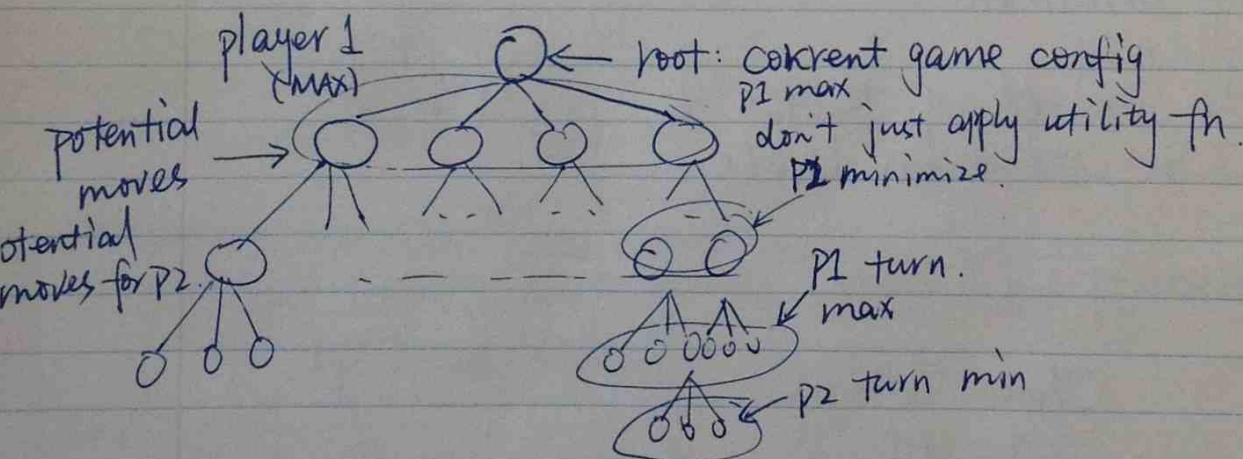 player 1
(MAX)
root: current game config
p1 max
don't just apply utility fn.
potential
moves
P2 minimize.
otential
moves for p2.
p1 turn.
max
p2 turn min